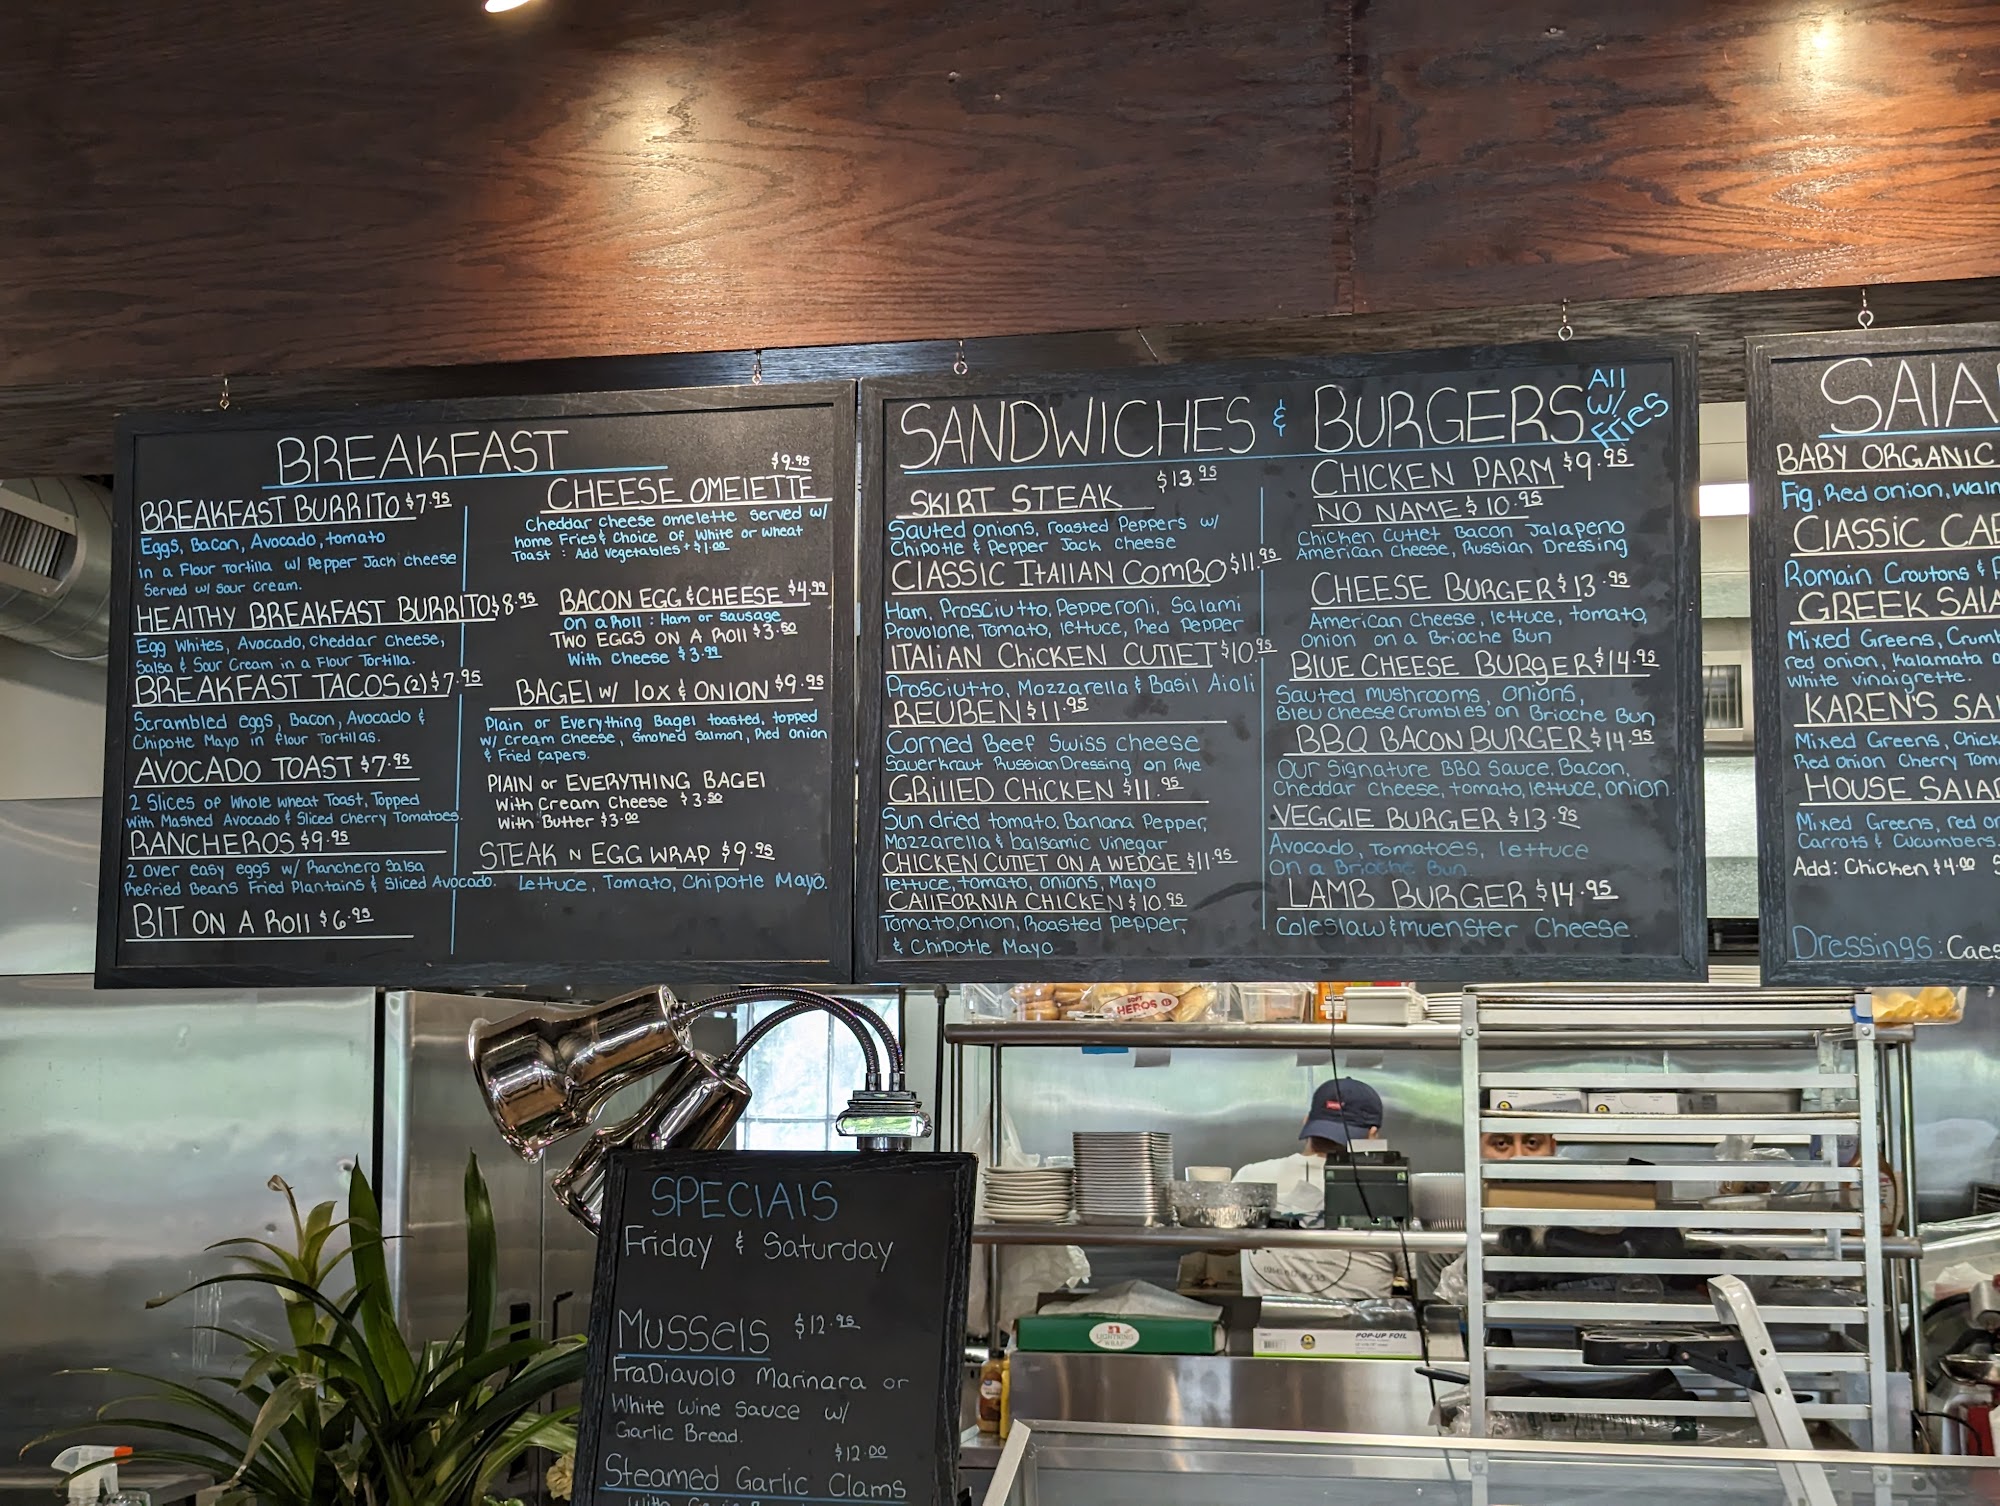 BREAKFAST
BREAKFAST BURRITO $7.95
Eggs, Bacon, Avocado, tomato
in a Flour Tortilla w/ Pepper Jack cheese
Served w/ sour cream.
HEALTHY BREAKFAST BURRITO $8.95
Egg Whites, Avocado, Cheddar Cheese,
Salsa & Sour Cream in a Flour Tortilla.
BREAKFAST TACOS (2) $7.95
Scrambled eggs, Bacon, Avocado &
Chipotle Mayo in flour Tortillas.
AVOCADO TOAST $7.95
2 Slices of Whole wheat Toast, Topped
with Mashed Avocado & Sliced Cherry Tomatoes.
RANCHEROS $9.95
2 over easy eggs w/ Ranchero Salsa
Refried Beans Fried Plantains & Sliced Avocado.
BIT ON A Roll $6.95
$9.95
CHEESE OMElETTE
Cheddar cheese omelette served w/
home Fries & Choice of White or Wheat
Toast : Add Vegetables + $1.00
BACON EGG & CHEESE $4.99
on a Roll : Ham or Sausage
TWO EGGS ON A Roll $3.50
With Cheese $3.99
BAGEl w/ lox & ONION $9.95
Plain or Everything Bagel toasted, topped
w/ Cream Cheese, Smoked Salmon, Red Onion
& Fried capers.
PlAIN or EVERYTHING BAGEl
With Cream Cheese $3.50
With Butter $3.00
STEAK N EGG WRAP $9.95
Lettuce, Tomato, Chipotle Mayo.
SANDWICHES & BURGERS
All
w/
Fries
$13.95
SKIRT STEAK
Sauted onions, roasted Peppers w/
Chipotle & Pepper Jack Cheese
ClASSIC ItAlIAN ComBO $11.95
Ham, Prosciutto, Pepperoni, Salami
Provolone, Tomato, lettuce, Red Pepper
ITAliAN ChicKEN CUTlET $10.95
Prosciutto, Mozzarella & Basil Aioli
REUBEN $11.95
Corned Beef Swiss cheese
Sauerkraut Russian Dressing on Rye
GRillED CHiCKEN $11.95
Sun dried tomato. Banana Pepper,
Mozzarella & balsamic vinegar
CHICKEN CUTlET ON A WEDGE $11.95
lettuce, tomato, onions, Mayo
CAlIFORNIA CHICKEN $10.95
Tomato, onion, Roasted pepper,
& Chipotle Mayo
CHICKEN PARM $9.95
NO NAME $10.95
Chicken Cutlet Bacon Jalapeno
American Cheese, Russian Dressing
CHEESE BURGER $13.95
American Cheese, lettuce, tomato,
Onion on a Brioche Bun
BlUE CHEESE BURGER $14.95
Sauted mushrooms, Onions,
Bleu Cheese Crumbles on Brioche Bun
BBQ BACON BURGER $14.95
Our Signature BBQ Sauce, Bacon,
Cheddar Cheese, tomato, lettuce, onion.
VEGGIE BURGER $13.95
Avocado, Tomatoes, lettuce
On a Brioche Bun.
LAMB BURGER $14.95
Coleslaw & muenster Cheese.
SAlA
BABY ORGANIC
Fig, Red onion, waln
ClASSiC CAE
Romain Croutons &
GREEK SAlA
Mixed Greens, Crumb
red onion, Kalamata
White vinaigrette.
KAREN'S SA
Mixed Greens, Chick
Red onion Cherry Tom
HOUSE SAlAD
Mixed Greens, red on
Carrots & Cucumbers.
Add: Chicken $4.00
Dressings: Caes
HEROS
LIGHTNING
WRAP
POP-UP FOIL
SPECIAlS
Friday & Saturday
Mussels $12.95
FraDiavolo Marinara or
White Wine Sauce w/
Garlic Bread.
$12.00
Steamed Garlic Clams
With